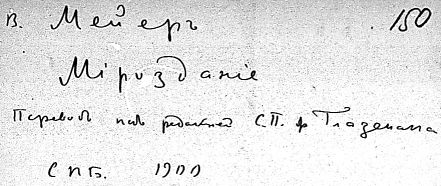 В. Мейеръ 150
Мірозданіе
Переводъ подъ редакціей С.П. ф Глазенапа
СПБ. 1900